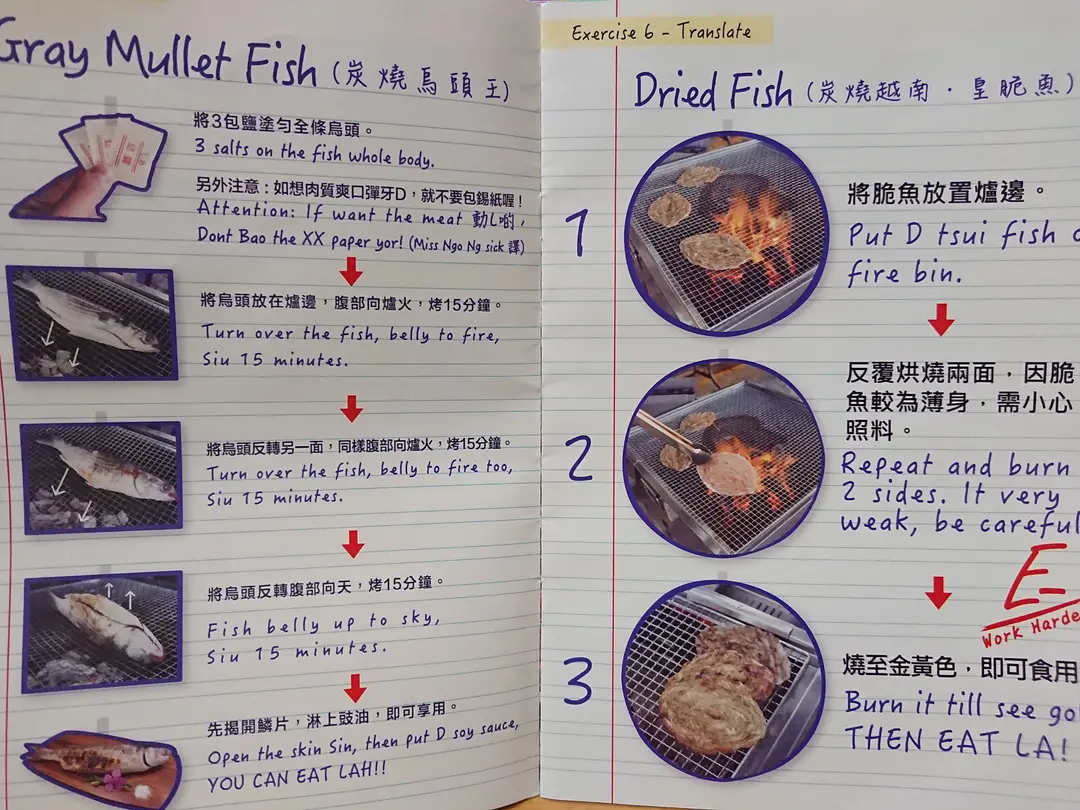 Gray Mullet Fish (炭燒烏頭王)
將3包鹽塗勻全條烏頭。
3 salts on the fish whole body.
另外注意：如想肉質爽口彈牙D，就不要包錫紙喔！
Attention: If want the meat 動L啲，
Dont Bao the XX paper yor! (Miss Ngo Ng sick 譯)
將烏頭放在爐邊，腹部向爐火，烤15分鐘。
Turn over the fish, belly to fire,
Siu 15 minutes.
將烏頭反轉另一面，同樣腹部向爐火，烤15分鐘。
Turn over the fish, belly to fire too,
Siu 15 minutes.
將烏頭反轉腹部向天，烤15分鐘。
Fish belly up to sky,
Siu 15 minutes.
先揭開鱗片，淋上豉油，即可享用。
Open the skin Sin, then put D soy sauce,
YOU CAN EAT LAH!!
Exercise 6 - Translate
Dried Fish (炭燒越南．皇脆魚)
1
將脆魚放置爐邊。
Put D tsui fish
fire bin.
2
反覆烘燒兩面，因脆
魚較為薄身，需小心
照料。
Repeat and burn
2 sides. It very
weak, be careful
E-
Work Harde
3
燒至金黃色，即可食用
Burn it till see go
THEN EAT LA!